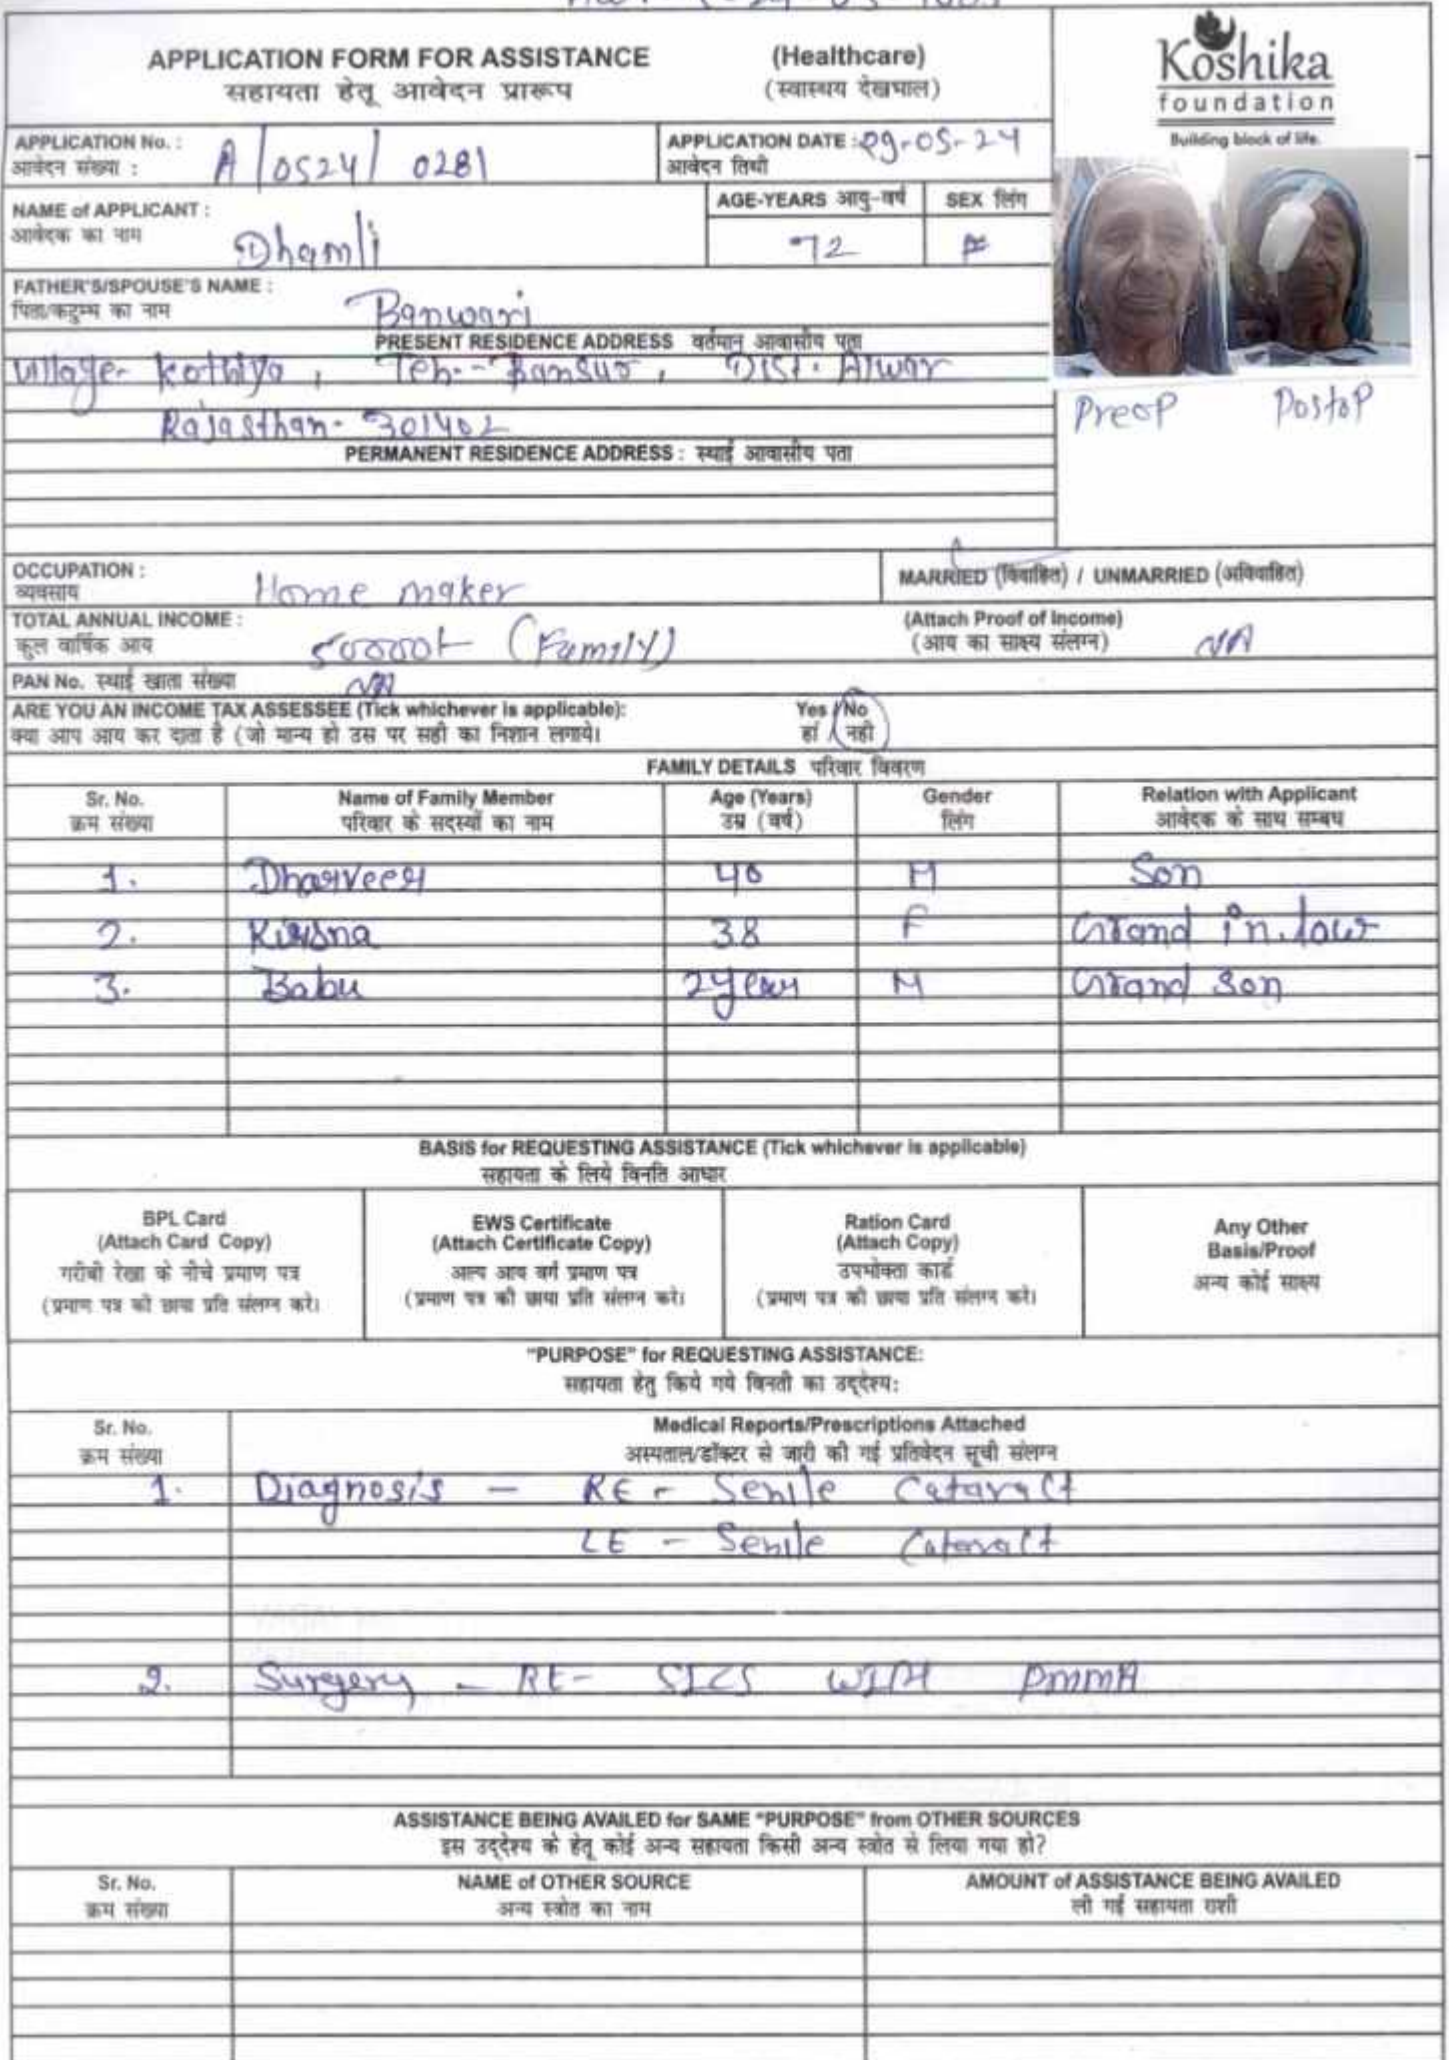 APPLICATION FORM FOR ASSISTANCE (Healthcare)
सहायता हेतू आवेदन प्रारूप (स्वास्थय देखभाल)
Koshika
foundation
Building block of life.
APPLICATION No. : A/0524/0281
आवेदन संख्या :
APPLICATION DATE : 09-05-24
आवेदन तिथी
NAME of APPLICANT : Dhamli
आवेदक का नाम
AGE-YEARS आयु-वर्ष 72
SEX लिंग F
FATHER'S/SPOUSE'S NAME : Banwari
पिता/कटुम्ब का नाम
PRESENT RESIDENCE ADDRESS वर्तमान आवासीय पता
Village- Kothiya, Teh.- Bansur, Dist. Alwar
Rajasthan- 301402
Preop Postop
PERMANENT RESIDENCE ADDRESS : स्थाई आवासीय पता
OCCUPATION : Home maker
व्यवसाय
MARRIED (विवाहित) / UNMARRIED (अविवाहित)
TOTAL ANNUAL INCOME : (Family)
कुल वार्षिक आय
(Attach Proof of Income) NA
(आय का साक्ष्य संलग्न)
PAN No. स्थाई खाता संख्या NA
ARE YOU AN INCOME TAX ASSESSEE (Tick whichever is applicable): Yes / No
क्या आप आय कर दाता है (जो मान्य हो उस पर सही का निशान लगाये। हाँ / नही
FAMILY DETAILS परिवार विवरण
Sr. No. Name of Family Member Age (Years) Gender Relation with Applicant
क्रम संख्या परिवार के सदस्यों का नाम उम्र (वर्ष) लिंग आवेदक के साथ सम्बध
1. Dharveer 40 M Son
2. Kirsna 38 F Grand in.law
3. Babu 2years M Grand Son
BASIS for REQUESTING ASSISTANCE (Tick whichever is applicable)
सहायता के लिये विनति आधार
BPL Card
(Attach Card Copy)
गरीबी रेखा के नीचे प्रमाण पत्र
(प्रमाण पत्र की छाया प्रति संलग्न करे।
EWS Certificate
(Attach Certificate Copy)
अल्प आय वर्ग प्रमाण पत्र
(प्रमाण पत्र की छाया प्रति संलग्न करे।
Ration Card
(Attach Copy)
उपभोक्ता कार्ड
(प्रमाण पत्र की छाया प्रति संलग्न करे।
Any Other
Basis/Proof
अन्य कोई साक्ष्य
"PURPOSE" for REQUESTING ASSISTANCE:
सहायता हेतु किये गये विनती का उद्देश्य:
Sr. No. Medical Reports/Prescriptions Attached
क्रम संख्या अस्पताल/डॉक्टर से जारी की गई प्रतिवेदन सूची संलग्न
1. Diagnosis - RE - Senile Cataract
LE - Senile Cataract
2. Surgery - RE- SICS WITH PMMA
ASSISTANCE BEING AVAILED for SAME "PURPOSE" from OTHER SOURCES
इस उद्देश्य के हेतू कोई अन्य सहायता किसी अन्य स्त्रोत से लिया गया हो?
Sr. No. NAME of OTHER SOURCE AMOUNT of ASSISTANCE BEING AVAILED
क्रम संख्या अन्य स्त्रोत का नाम ली गई सहायता राशी